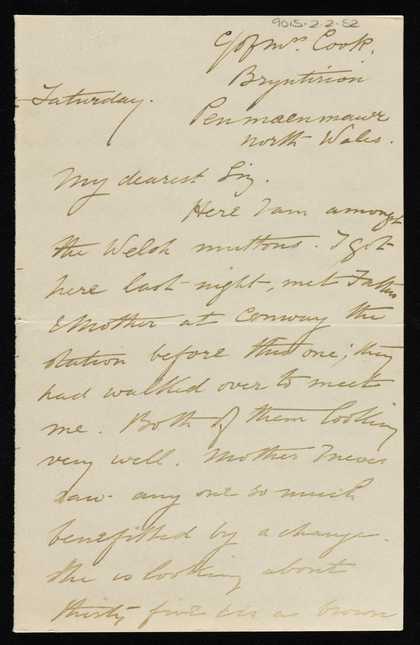 9015-2-2-52
C/o Mrs. Cook,
Bryntirion
Saturday.
Penmaenmawr
North Wales.
My dearest Liz.
Here I am amongst
the Welsh muttons. I got
here last night, met Father
& Mother at Conway the
station before this one; they
had walked over to meet
me. Both of them looking
very well. Mother I never
saw any one so much
benefitted by a change.
She is looking about
thirty five as a brown